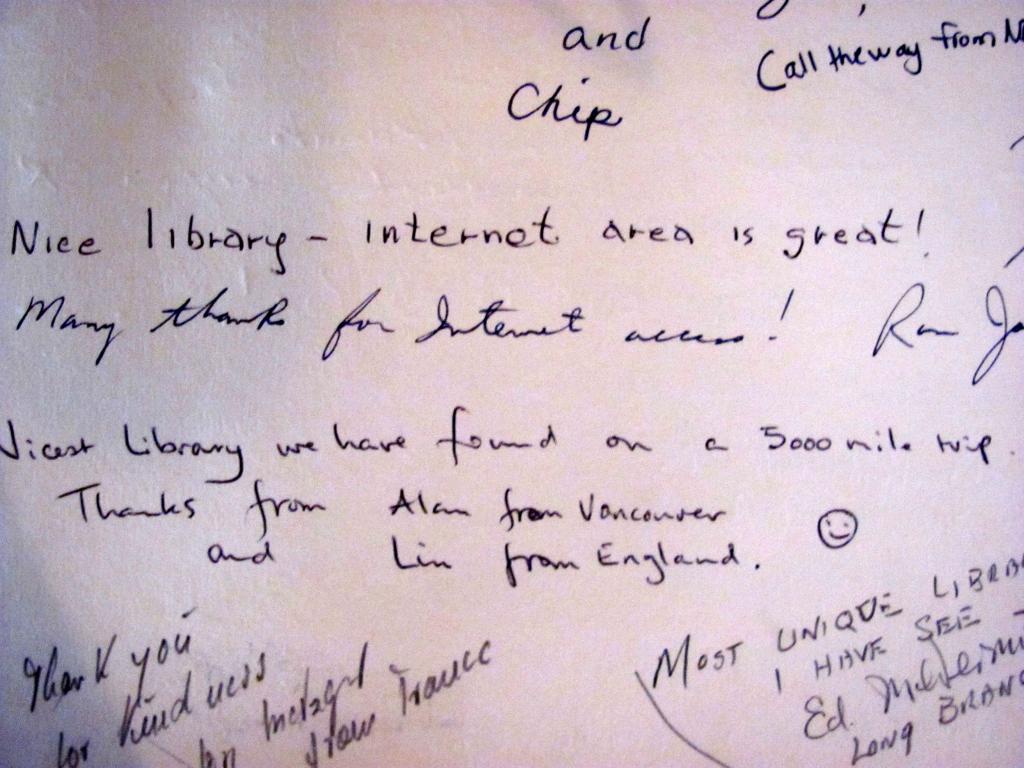 and
Chip
(all the way from
Nice library - internet area is great!
Many thanks for Internet access!
Nicest Library we have found on a 5000 mile trip.
Thanks from Alan from Vancouver
and Lin from England.
Thank you
for kindness
from France
MOST UNIQUE LIBRA
I HAVE SEE
Ed.
LONG BRANC